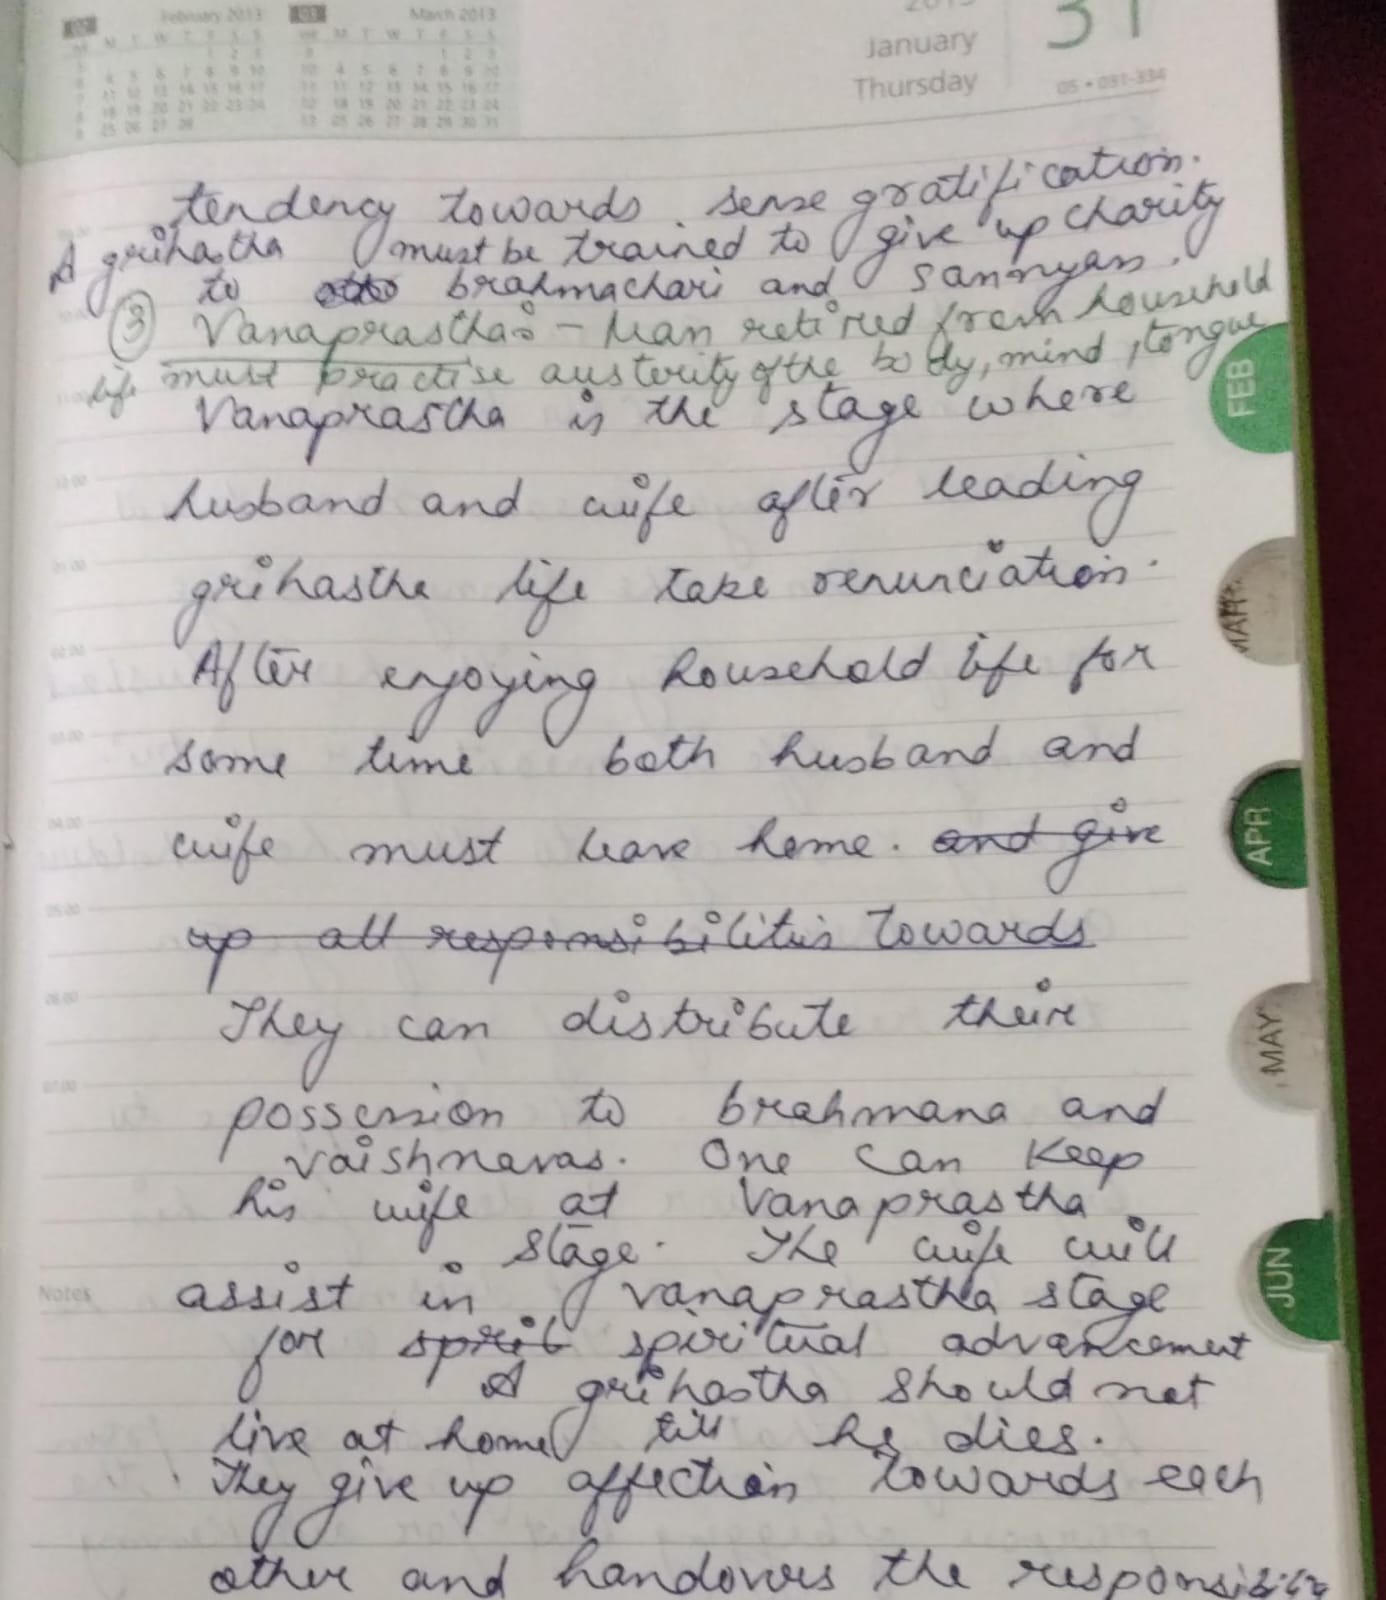 February 2013
March 2013
January
Thursday
31
05 • 031-334
tendency towards sense gratification.
A grihastha must be trained to give up charity
to brahmachari and sannyas.
③ Vanaprastha:- Man retired from household
life must practise austerity of the body, mind, tongue
Vanaprastha is the stage where
husband and wife after leading
grihastha life take renunciation.
After enjoying household life for
some time both husband and
wife must leave home. and give
up all responsibilities towards
They can distribute their
possession to brahmana and
vaishnavas. One can keep
his wife at Vanaprastha
stage. The wife will
assist in vanaprastha stage
for sprit spiritual advancement
A grihastha should not
live at home till he dies.
They give up affection towards each
other and handovers the responsibility
Notes
FEB
MAR
APR
MAY
JUN